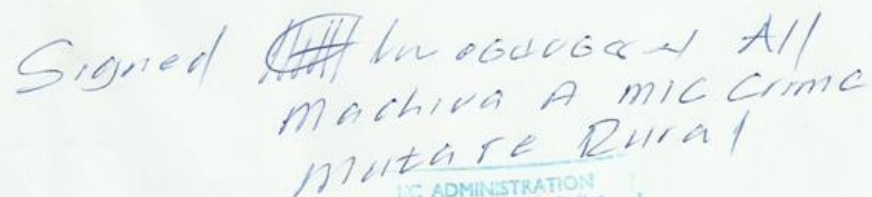 Signed
Machiva A M/C Crime
Mutare Rural
ADMINISTRATION